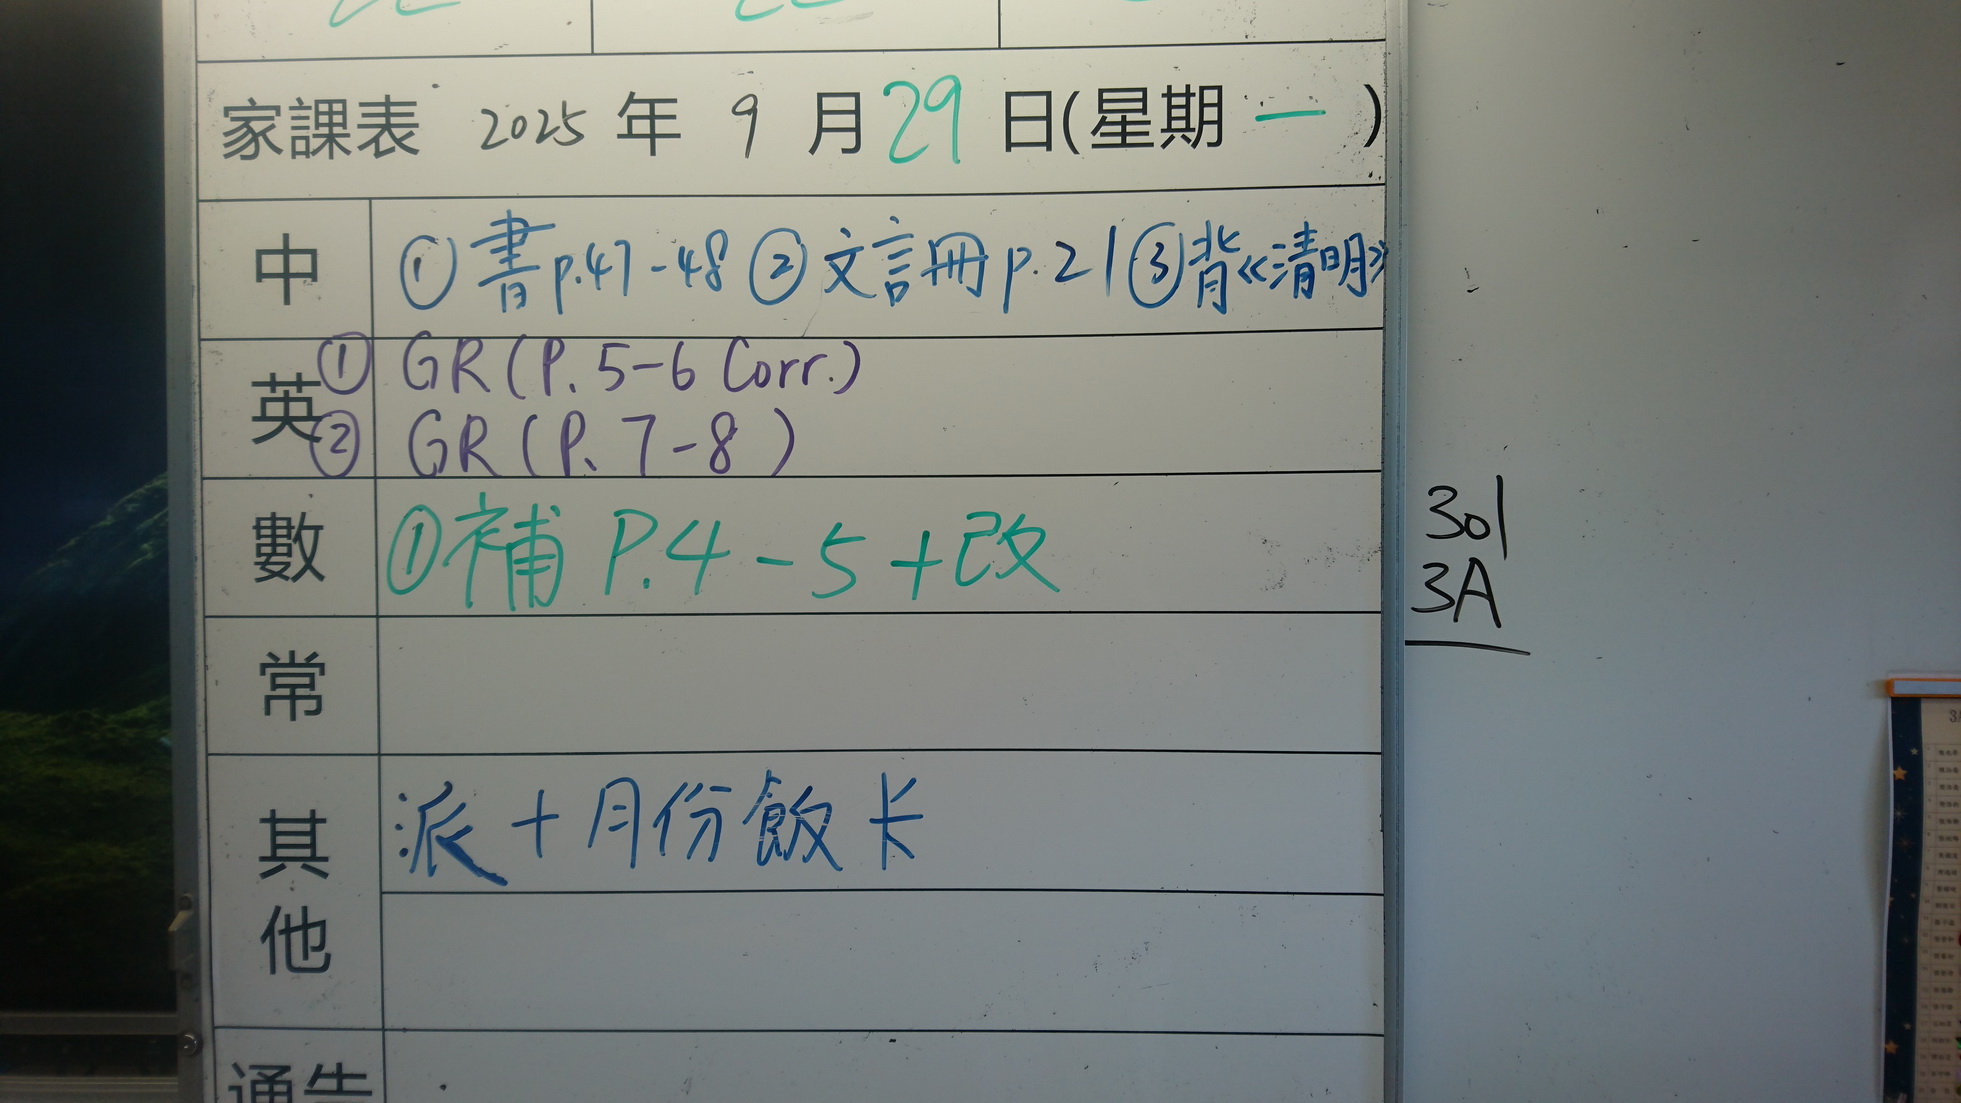 家課表 2025 年 9 月 29 日(星期 一 )
中 ① 書 p.47-48 ② 文言冊 p.21 ③ 背《清明》
英 ① GR (P. 5-6 Corr.)
② GR (P. 7-8)
數 ① 補 P.4-5+改
常
其他 派十月份飯卡
通告
301
3A